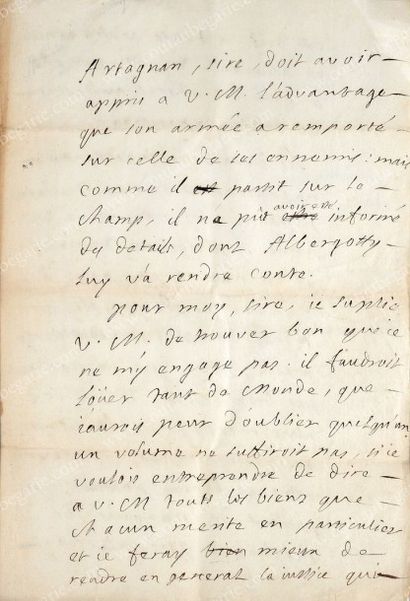 Artagnan, sire, doit avoir
appris a V. M. l'advantage
que son armée a remporté
sur celle de ses ennemis: mais
comme il est partit sur le
champ, il ne put avoir esté informé
des details, dont Albergotty
luy va rendre conte.
pour moy, sire, ie suplie
V. M. de trouver bon que ie
ne m'y engage pas. il faudroit
loüer tant de Monde, que
i'aurois peur d'oublier quelqu'un
un volume ne suffiroit pas, si ie
voulois entreprendre de dire
a V. M touts les biens que
chacun merite en particulier
et ie feray bien mieux de
rendre en general la iustice qui